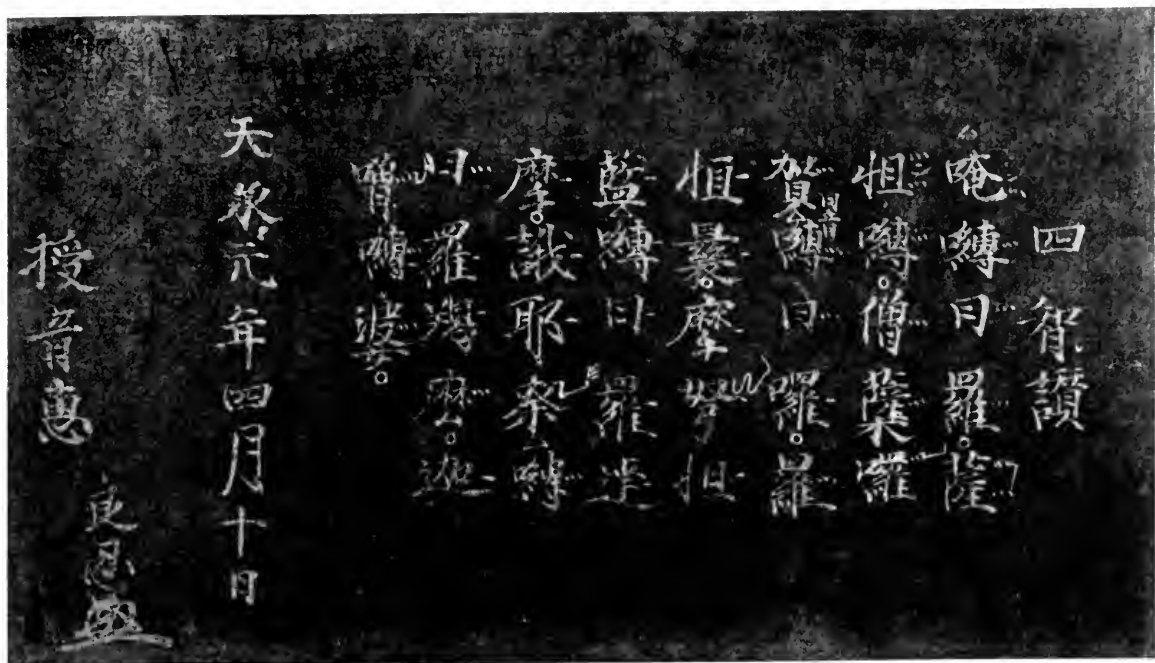 四智讃
唵嚩日羅薩
怛嚩僧蘖囉
賀嚩日囉羅
怛曩摩努怛
藍嚩日羅達
摩誐耶柰嚩
日羅羯麼迦
嚕嚩婆
天承元年四月十日
授音恵
良忍